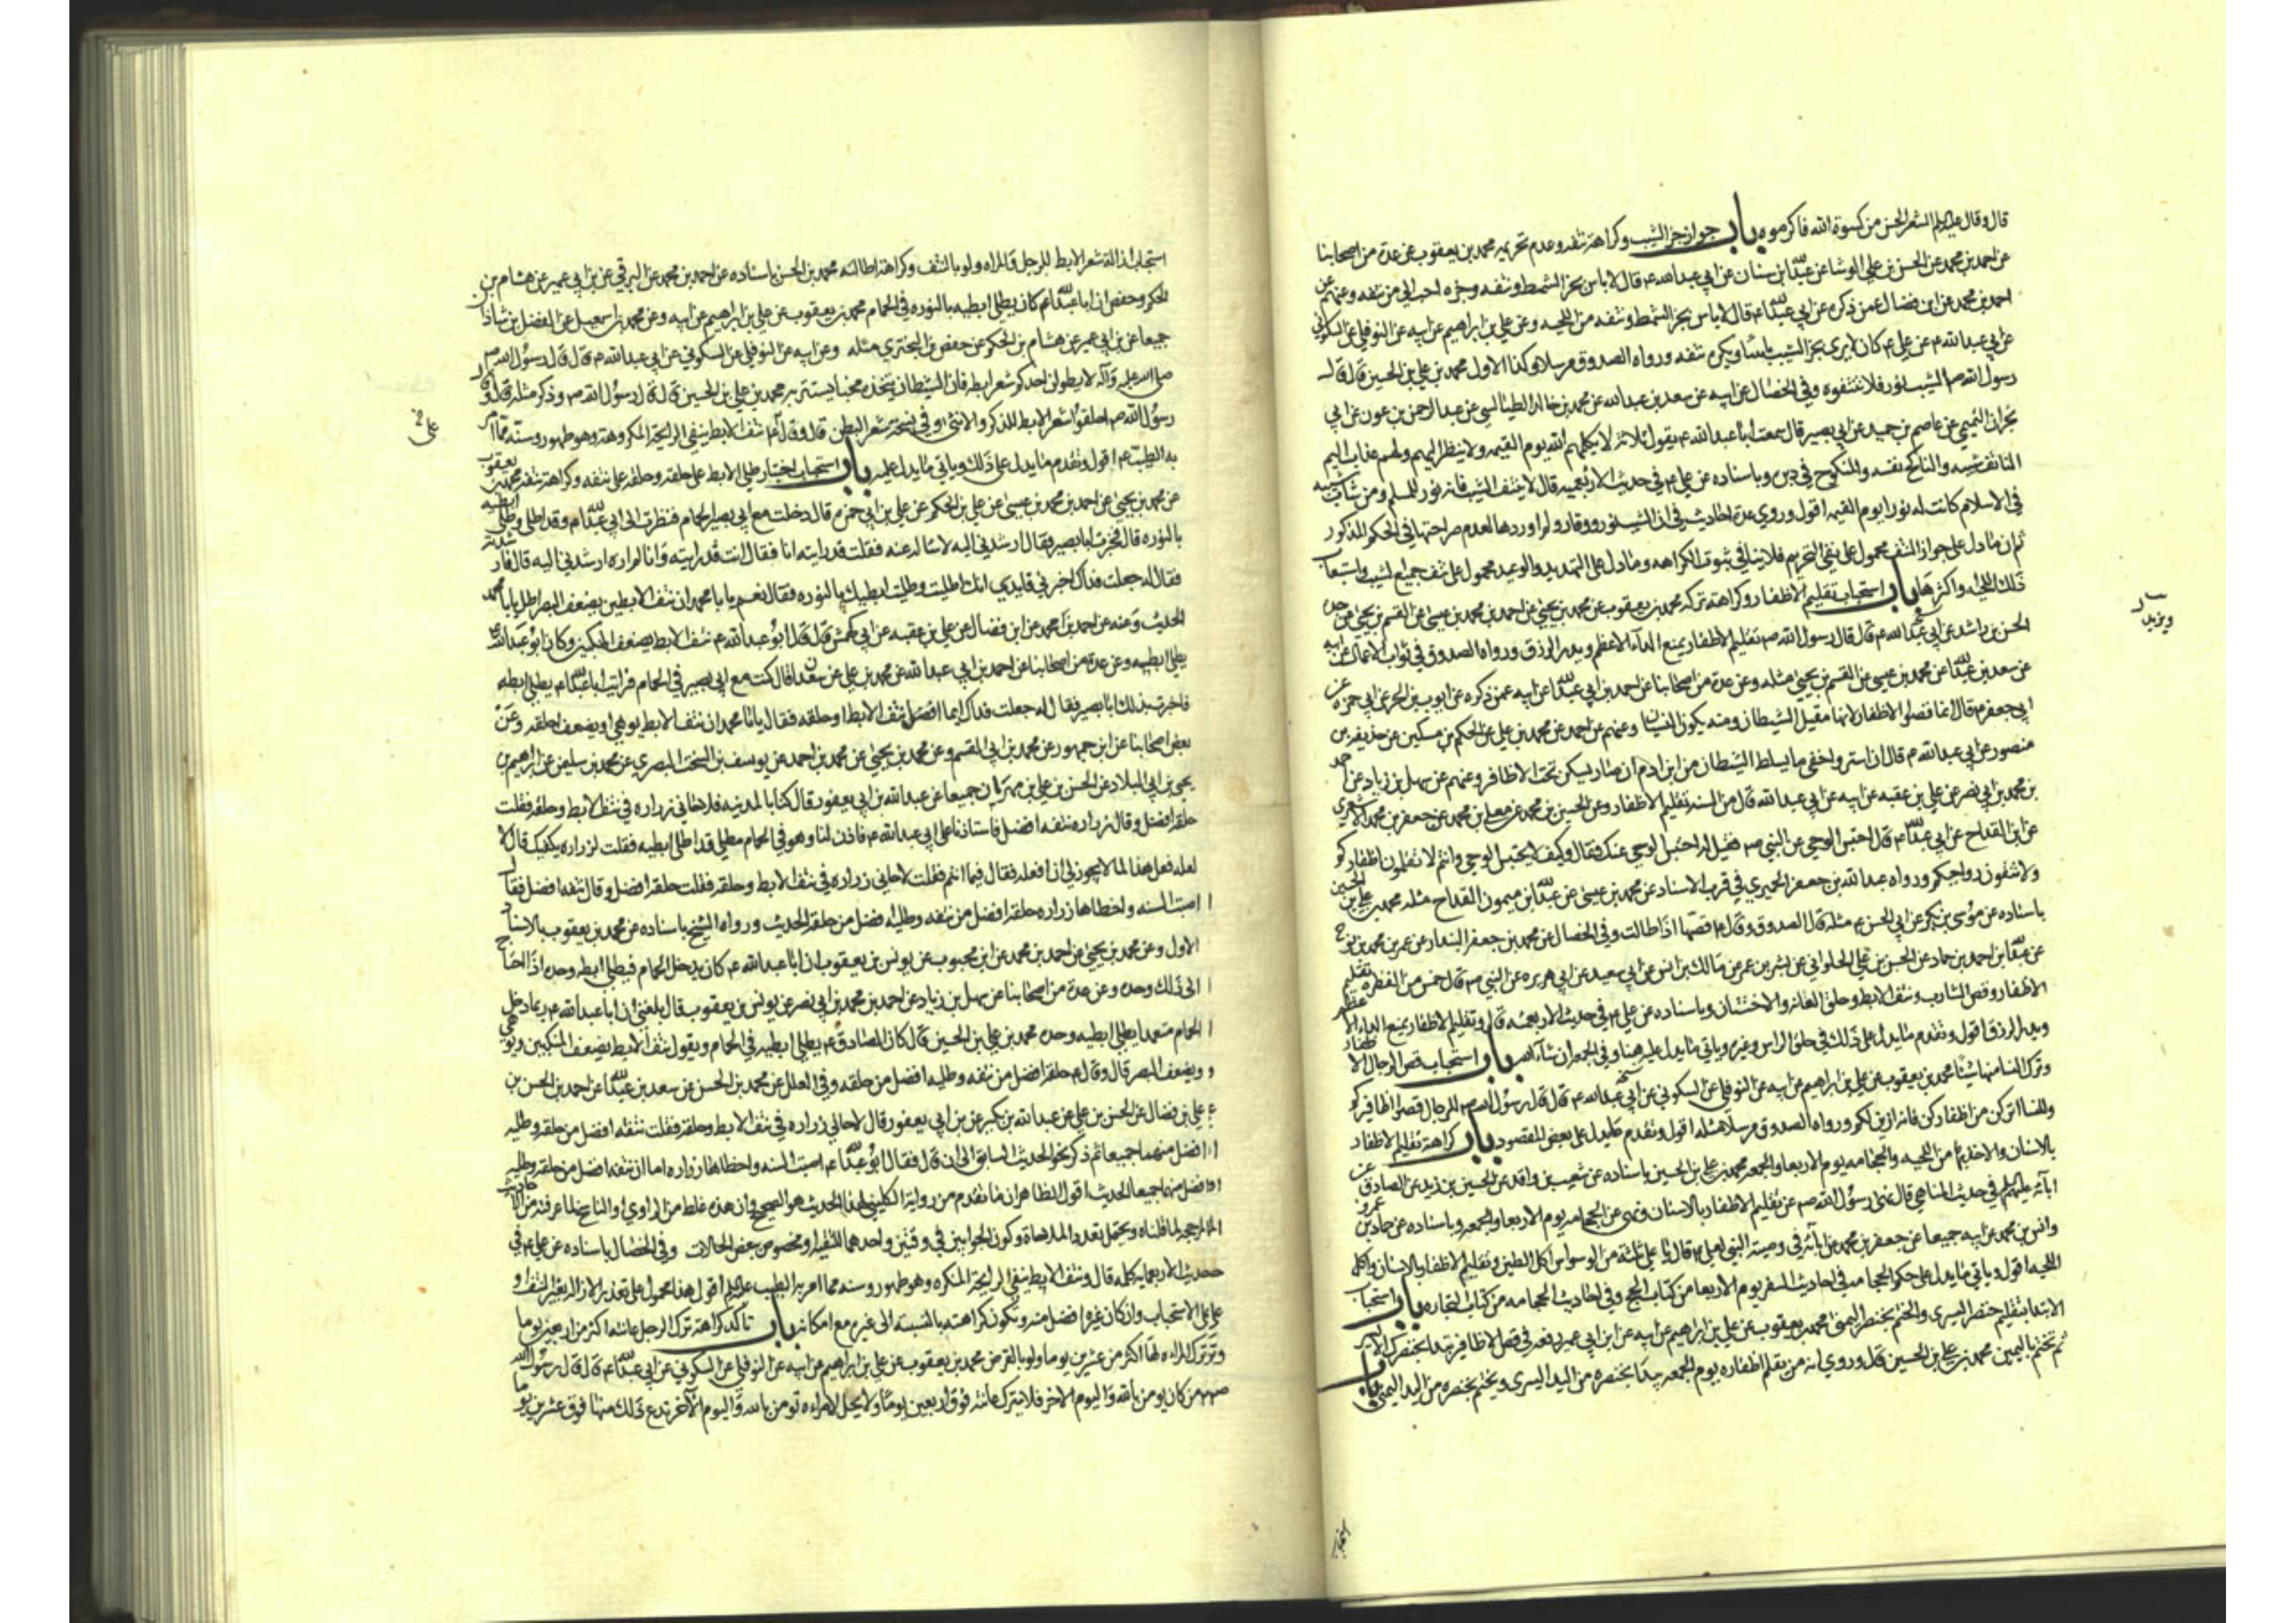 قال وقال عليه السلم الشعر الحسن من كسوة الله فاكرموه باب جواز جز الشيب وكراهة نتفه وعدم تحريمه محمد بن يعقوب عن عدة من اصحابنا
عن احمد بن محمد عن الحسن بن علي الوشا عن عبد الله بن سنان عن ابي عبد الله ع قال لا باس بجز الشمط ونتفه وجزه احب الي من نتفه وعنهم عن
احمد بن محمد عن ابن فضال عمن ذكره عن ابي عبد الله ع قال لا باس بجز الشمط ونتفه من اللحيه وعن علي بن ابراهيم عن ابيه عن النوفلي عن السكوني
عن ابي عبد الله ع عن علي ع كان لا يرى بجز الشيب باسا ويكره نتفه ورواه الصدوق مرسلا وكذا الاول محمد بن علي بن الحسين قال قال
رسول الله ص الشيب نور فلا تنتفوه وفي الخصال عن ابيه عن سعد بن عبد الله عن محمد بن خالد الطيالسي عن عبد الرحمن بن عون عن ابي
نجران التميمي عن عاصم بن حميد عن ابي بصير قال سمعت ابا عبد الله ع يقول ثلاثة لا يكلمهم الله يوم القيمه ولا ينظر اليهم ولهم عذاب اليم
الناتف شيبه والناكح نفسه والمنكوح في دبره وباسناده عن علي ع في حديث الاربعميه قال لا ينتف الشيب فانه نور للمسلم ومن شاب شيبه
في الاسلام كانت له نورا يوم القيمه اقول وروي عدة احاديث في ان الشيب نور ووقار ولم اوردها لعدم صراحتها في الحكم المذكور
ثم ان ما دل على جواز النتف محمول على نفي التحريم فلا ينافي ثبوت الكراهه وما دل على التهديد والوعيد محمول على نتف جميع الشيب واستيعاب
ذلك اللحيه واكثرها باب استحباب تقليم الاظفار وكراهة تركه محمد بن يعقوب عن محمد بن يحيى عن احمد بن محمد بن عيسى عن القسم بن يحيى عن جده
الحسن بن راشد عن ابي عبد الله ع قال قال رسول الله ص تقليم الاظفار يمنع الداء الاعظم ويدر الرزق ورواه الصدوق في ثواب الاعمال عن ابيه
عن سعد بن عبد الله عن محمد بن عيسى عن القسم بن يحيى مثله وعن عدة من اصحابنا عن احمد بن ابي عبد الله عن ابيه عمن ذكره عن ايوب بن الحر عن ابي حمزه عن
ابي جعفر ع قال انما قصوا الاظفار لانها مقيل الشيطان ومنه يكون النسيان وعنهم عن احمد عن محمد بن علي عن الحكم بن مسكين عن حذيفه بن
منصور عن ابي عبد الله ع قال ان استر واخفى ما يسلط الشيطان من ابن ادم ان صار يسكن تحت الاظافر وعنهم عن سهل بن زياد عن احمد
بن محمد بن ابي نصر عن علي بن عقبه عن ابيه عن ابي عبد الله قال من السنه تقليم الاظفار وعن الحسين بن محمد عن معلى بن محمد عن جعفر بن محمد الاشعري
عن ابن القداح عن ابي عبد الله ع قال احتبس الوحي عن النبي ص فقيل له احتبس الوحي عنك فقال وكيف لا يحتبس الوحي وانتم لا تقلمون اظفاركم
ولا تنقون رواجبكم ورواه عبد الله بن جعفر الحميري في قرب الاسناد عن محمد بن عيسى عن عبد الله بن ميمون القداح مثله محمد بن علي بن الحسين
باسناده عن موسى بن بكر عن ابي الحسن ع مثله قال الصدوق وقال ع قصها اذا طالت وفي الخصال عن محمد بن جعفر البندار عن
عن عبد الله بن احمد بن حماد عن الحسن بن علي الحلواني عن بشر بن عمر عن مالك بن انس عن ابي سعيد عن ابي هريره عن النبي ص قال خمس من الفطره تقليم
الاظفار وقص الشارب ونتف الابط وحلق العانه والاختتان وباسناده عن علي ع في حديث الاربعمئه قال وتقليم الاظفار يمنع الداء الاعظم
ويدر الرزق اقول وتقدم ما يدل على ذلك في حلق الراس وغيره وياتي ما يدل عليه هنا وفي الجمعه ان شاء الله باب استحباب قص الرجال الاظفار
وترك النسا منها شيئا محمد بن يعقوب عن علي بن ابراهيم عن ابيه عن النوفلي عن السكوني عن ابي عبد الله ع قال قال رسول الله ص للرجال قصوا اظافيركم
وللنسا اتركن من اظفاركن فانه ازين لكن ورواه الصدوق مرسلا مثله اقول وتقدم ما يدل على بعض المقصود باب كراهة تقليم الاظفار
بالاسنان والاخذ بها من اللحيه والحجامه يوم الاربعا والجمعه محمد بن علي بن الحسين باسناده عن شعيب بن واقد عن الحسين بن زيد عن الصادق عن
ابائه عليهم السلم في حديث المناهي قال نهى رسول الله ص عن تقليم الاظفار بالاسنان ونهى عن الحجامه يوم الاربعا والجمعه وباسناده عن حماد بن عمرو
وانس بن محمد عن ابيه جميعا عن جعفر بن محمد عن ابائه في وصية النبي لعلي ع قال يا علي ثلثة من الوسواس اكل الطين وتقليم الاظفار بالاسنان واكل
اللحيه اقول وياتي ما يدل على حكم الحجامه في احاديث السفر يوم الاربعا من كتاب الحج وفي احاديث الحجامه من كتاب التجاره باب استحباب
الابتدا بتقليم خنصر اليسرى والختم بخنصر اليمنى محمد بن يعقوب عن علي بن ابراهيم عن ابيه عن ابن ابي عمير رفعه في قص الاظافير تبدا بخنصرك الايسر
ثم تختم باليمين محمد بن علي بن الحسين قال وروي انه من يقلم اظفاره يوم الجمعه يبدا بخنصره من اليد اليسرى ويختم بخنصره من اليد اليمنى باب
ويزيد
استحباب
استحباب ازالة شعر الابط للرجل والمراه ولو بالنتف وكراهة اطالته محمد بن الحسن باسناده عن احمد بن محمد عن البرقي عن ابن ابي عمير عن هشام بن
الحكم وحفص ان ابا عبد الله ع كان يطلي ابطيه بالنوره في الحمام محمد بن يعقوب عن علي بن ابراهيم عن ابيه وعن محمد بن اسمعيل عن الفضل بن شاذان
جميعا عن ابن ابي عمير عن هشام بن الحكم عن حفص بن البختري مثله وعن ابيه عن النوفلي عن السكوني عن ابي عبد الله ع قال قال رسول الله ص
صلى الله عليه وآله لا يطولن احدكم شعر ابطه فان الشيطان يتخذه مخبئا يستتر به محمد بن علي بن الحسين قال قال رسول الله ص وذكر مثله قال وقال
رسول الله ص احلقوا شعر الابط للذكر والانثى وفي نسخة شعر البطن قال وقال ع نتف الابط ينفي الرايحة المكروهة وهو طهور وسنة مما امر
به الطيب ع اقول وتقدم ما يدل على ذلك وياتي ما يدل عليه باب استحباب اختيار طلي الابط على حلقه وحلقه على نتفه وكراهة نتفه محمد بن يعقوب
عن محمد بن يحيى عن احمد بن محمد بن عيسى عن علي بن الحكم عن علي بن ابي حمزه قال دخلت مع ابي بصير الحمام فنظرت الى ابي عبد الله ع وقد اطلى وطلى ابطيه
بالنوره قال فخبرت ابا بصير فقال ارشدني اليه لاساله عنه فقلت قد رايته انا فقال انت قد رايته وانا لم اره ارشدني اليه قال فارشدته
فقال له جعلت فداك اخبرني قايدي انك اطليت وطليت ابطيك بالنوره فقال نعم يا با محمد ان نتف الابطين يضعف البصر اطل يا با محمد
الحديث وعنه عن احمد بن محمد عن ابن فضال عن علي بن عقبه عن ابي كهمش قال قال ابو عبد الله ع نتف الابط يضعف المنكبين وكان ابو عبد الله ع
يطلي ابطيه وعن عدة من اصحابنا عن احمد بن ابي عبد الله عن محمد بن علي عن سعدان قال كنت مع ابي بصير في الحمام فرايت ابا عبد الله ع يطلي ابطه
فاخبرت بذلك ابا بصير فقال له جعلت فداك ايما افضل نتف الابط او حلقه فقال يا با محمد ان نتف الابط يوهي او يضعف احلقه وعن
بعض اصحابنا عن ابن جمهور عن محمد بن ابي القسم وعن محمد بن يحيى عن محمد بن احمد عن يوسف بن السخت البصري عن محمد بن سليمن عن ابراهيم بن
يحيى بن ابي البلاد عن الحسن بن علي بن مهران جميعا عن عبد الله بن ابي يعفور قال كنا بالمدينه فلاحاني زراره في نتف الابط وحلقه فقلت
حلقه افضل وقال زراره نتفه افضل فاستاذنا على ابي عبد الله ع فاذن لنا وهو في الحمام مطلي قد اطلى ابطيه فقلت لزراره يكفيك قال لا
لعله فعل هذا لما لا يجوز لي ان افعله فقال فيما انتم فقلت لاحاني زراره في نتف الابط وحلقه فقلت حلقه افضل وقال نتفه افضل فقال
اصبت السنه واخطاها زراره حلقه افضل من نتفه وطليه افضل من حلقه الحديث ورواه الشيخ باسناده عن محمد بن يعقوب بالاسناد
الاول وعن محمد بن يحيى عن احمد بن محمد عن ابن محبوب عن يونس بن يعقوب ان ابا عبد الله ع كان يدخل الحمام فيطلي ابطه وحده اذا احتاج
الى ذلك وحده وعن عدة من اصحابنا عن سهل بن زياد عن احمد بن محمد بن ابي نصر عن يونس بن يعقوب قال بلغني ان ابا عبد الله ع ربما دخل
الحمام متعمدا يطلي ابطيه وحده محمد بن علي بن الحسين قال كان الصادق ع يطلي ابطيه في الحمام ويقول نتف الابط يضعف المنكبين ويوهي
ويضعف البصر قال وقال ع حلقه افضل من نتفه وطليه افضل من حلقه وفي العلل عن محمد بن الحسن عن سعد بن عبد الله عن احمد بن الحسن بن
علي بن فضال عن الحسن بن علي عن عبد الله بن بكير عن ابن ابي يعفور قال لاحاني زراره في نتف الابط وحلقه فقلت نتفه افضل من حلقه وطليه
افضل منهما جميعا ثم ذكر نحو الحديث السابق الى ان قال فقال ابو عبد الله ع اصبت السنه واخطاها زراره اما ان نتفه افضل من حلقه وطليه
افضل منهما جميعا الحديث اقول الظاهر ان ما تقدم من رواية الكليني لهذا الحديث هو الصحيح وان هذه غلط من الراوي او الناسخ لما عرفته من الاحاديث
لما قلناه ويحتمل تعدد الملاحاة وكون الجوابين في وقتين واحدهما للتقيه او مخصوص ببعض الحالات وفي الخصال باسناده عن علي ع في
حديث الاربعمايه كله قال ونتف الابط ينفي الرايحة المنكره وهو طهور وسنه مما امر به الطيب عليه السلم اقول هذا محمول على تعذر الازاله بغير النتف او
على الاستحباب وان كان غيره افضل منه وتكون كراهته بالنسبة الى غيره مع امكانه باب تاكد كراهة ترك الرجل عانته اكثر من اربعين يوما
وترك المراه لها اكثر من عشرين يوما ولو بالقرض محمد بن يعقوب عن علي بن ابراهيم عن ابيه عن النوفلي عن السكوني عن ابي عبد الله ع قال قال رسول الله
ص من كان يومن بالله واليوم الاخر فلا يترك عانته فوق اربعين يوما ولا يحل لامراه تومن بالله واليوم الآخر تدع ذلك منها فوق عشرين يوما